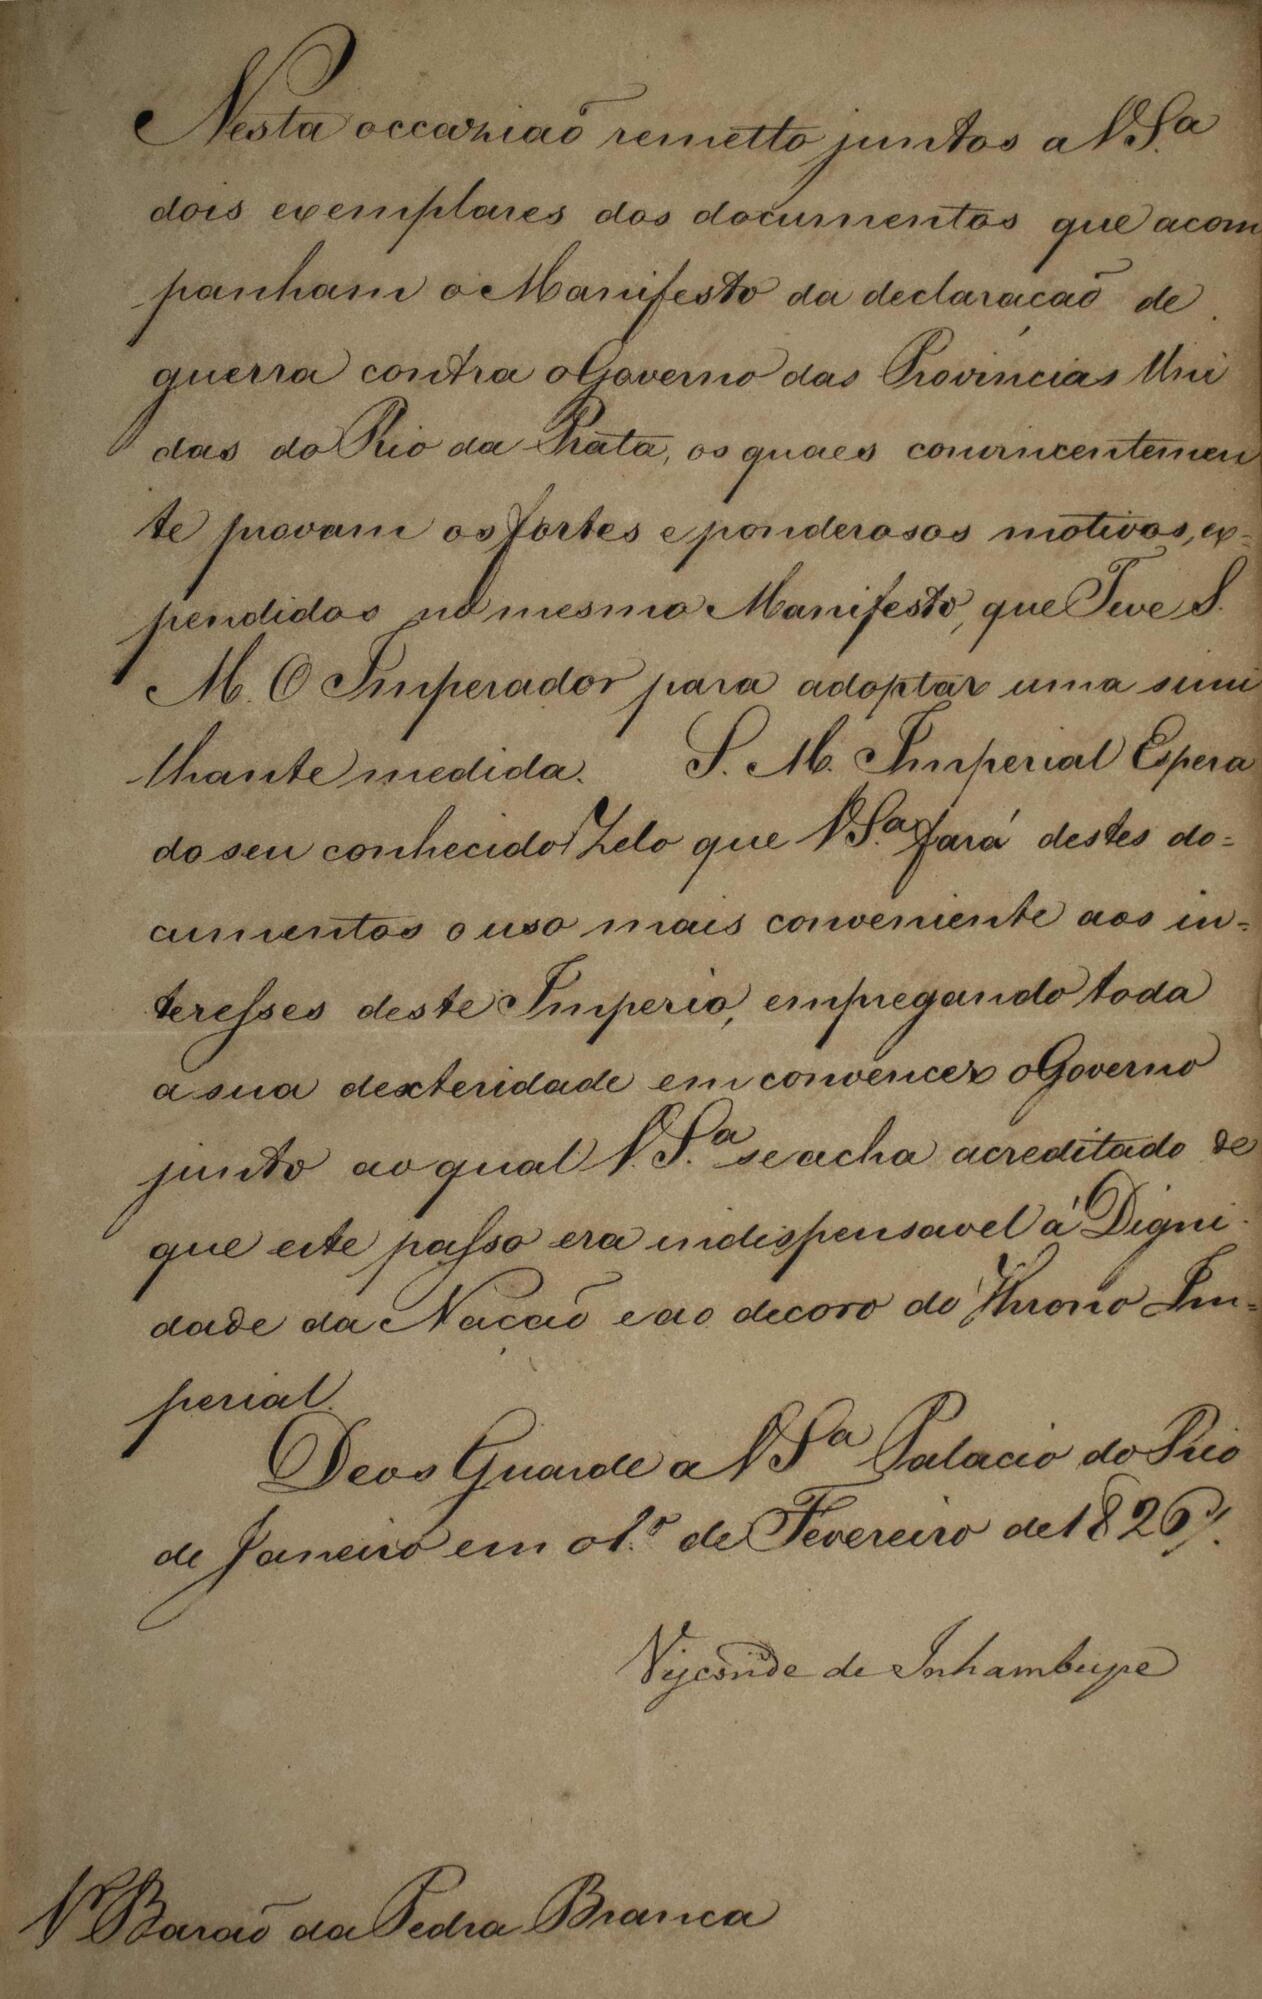 Nesta occaziaõ remetto juntos a V.S.ª
dois exemplares dos documentos que acom
panham o Manifesto da declaraçaõ de
guerra contra o Governo das Provincias Uni
das do Rio da Prata, os quaes convincentemen
te provam os fortes e ponderosos motivos, ex=
pendidos no mesmo Manifesto, que Teve S.
M. O Imperador para adoptar uma simi
lhante medida. S. M. Imperial Espera
do seu conhecido Zelo que V.S.ª fará destes do=
cumentos o uso mais conveniente aos in=
teresses deste Imperio, empregando toda
a sua dexteridade em convencer o Governo
junto ao qual V.S.ª se acha acreditado de
que este passo era indispensavel á Digni-
dade da Naçaõ e ao decoro do Throno Im=
perial.
Deos Guarde a V.S.ª Palacio do Rio
de Janeiro em 1.º de Fevereiro de 1826/.
Visconde de Inhambupe
Baraõ da Pedra Branca